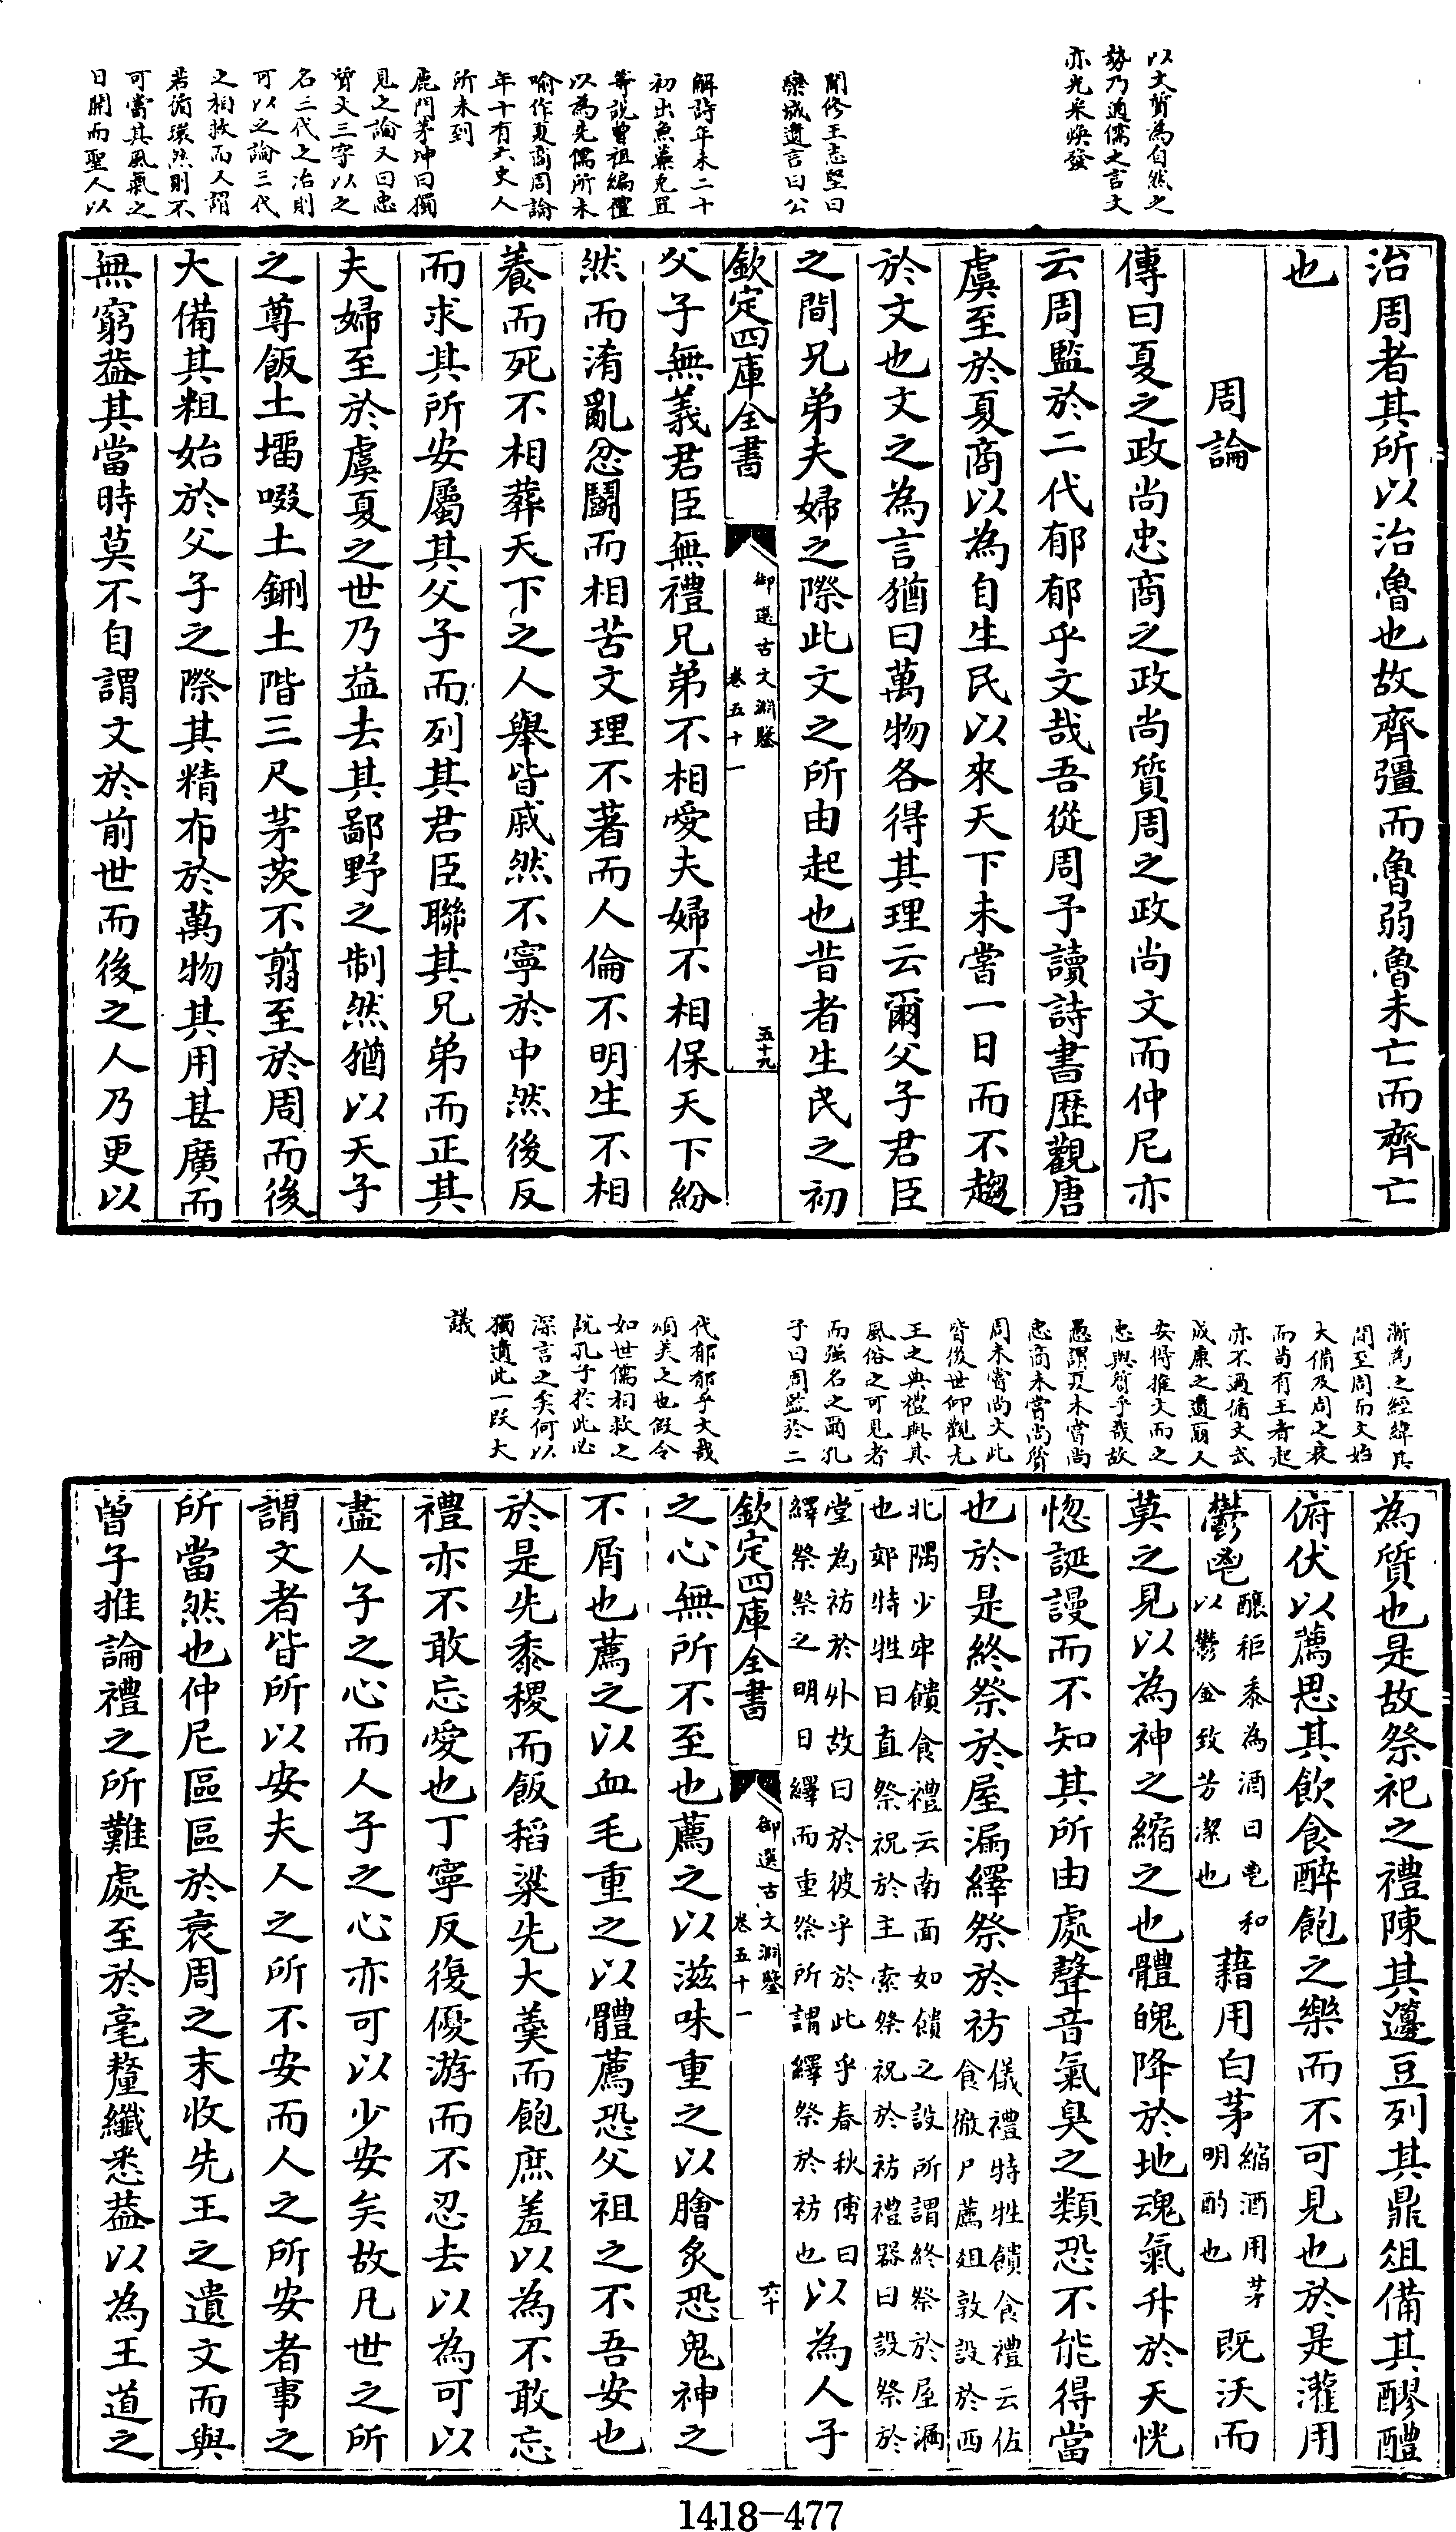 以文質為自然之
勢乃通儒之言文
亦光采煥發
聞修王志堅曰
欒城遺言曰公
解詩年未二十
初出魚藻兔罝
等說曾祖編禮
以為先儒所未
喻作夏商周論
年十有六史人
所未到
鹿門茅坤曰獨
見之論又曰忠
質文三字以之
名三代之治則
可以之論三代
之相救而又謂
若循環然則不
可當其風氣之
日開而聖人以
治周者其所以治魯也故齊彊而魯弱魯未亡而齊亡
也
周論
傳曰夏之政尚忠商之政尚質周之政尚文而仲尼亦
云周監於二代郁郁乎文哉吾從周予讀詩書歴觀唐
虞至於夏商以為自生民以來天下未嘗一日而不趨
於文也文之為言猶曰萬物各得其理云爾父子君臣
之間兄弟夫婦之際此文之所由起也昔者生民之初
欽定四庫全書
御選古文淵鑒
卷五十一
五十九
父子無義君臣無禮兄弟不相愛夫婦不相保天下紛
然而淆亂忿鬭而相苦文理不著而人倫不明生不相
養而死不相葬天下之人舉皆戚然不寧於中然後反
而求其所安屬其父子而列其君臣聯其兄弟而正其
夫婦至於虞夏之世乃益去其鄙野之制然猶以天子
之尊飯土塯啜土鉶土階三尺茅茨不翦至於周而後
大備其粗始於父子之際其精布於萬物其用甚廣而
無窮葢其當時莫不自謂文於前世而後之人乃更以
漸為之經緯其
間至周而文始
大備及周之衰
而尚有王者起
亦不過循文武
成康之遺爾人
安得推文而之
忠與質乎哉故
愚謂夏未嘗尚
忠商未嘗尚質
周未嘗尚文此
皆後世仰觀先
王之典禮與其
風俗之可見者
而强名之爾孔
子曰周監於二
代郁郁乎文哉
頌美之也假令
如世儒相救之
說孔子於此必
深言之矣何以
獨遺此一段大
議
為質也是故祭祀之禮陳其籩豆列其鼎俎備其醪醴
俯伏以薦思其飲食醉飽之樂而不可見也於是灌用
鬱鬯釀秬黍為酒曰鬯和以鬱金致芳潔也藉用白茅縮酒用茅明酌也既沃而
莫之見以為神之縮之也體魄降於地魂氣升於天恍
惚誕謾而不知其所由處聲音氣臭之類恐不能得當
也於是終祭於屋漏繹祭於祊儀禮特牲饋食禮云佐食徹尸薦俎敦設於西
北隅少牢饋食禮云南面如饋之設所謂終祭於屋漏也郊特牲曰直祭祝於主索祭祝於祊禮器曰設祭於
堂為祊於外故曰於彼乎於此乎春秋傳曰繹祭祭之明日繹而重祭所謂繹祭於祊也以為人子
欽定四庫全書
御選古文淵鑒
卷五十一
六十
之心無所不至也薦之以滋味重之以膾炙恐鬼神之
不屑也薦之以血毛重之以體薦恐父祖之不吾安也
於是先黍稷而飯稻粱先大羹而飽庶羞以為不敢忘
禮亦不敢忘愛也丁寧反復優游而不忍去以為可以
盡人子之心而人子之心亦可以少安矣故凡世之所
謂文者皆所以安夫人之所不安而人之所安者事之
所當然也仲尼區區於衰周之末收先王之遺文而與
曽子推論禮之所難處至於毫釐纖悉葢以為王道之
1418-477